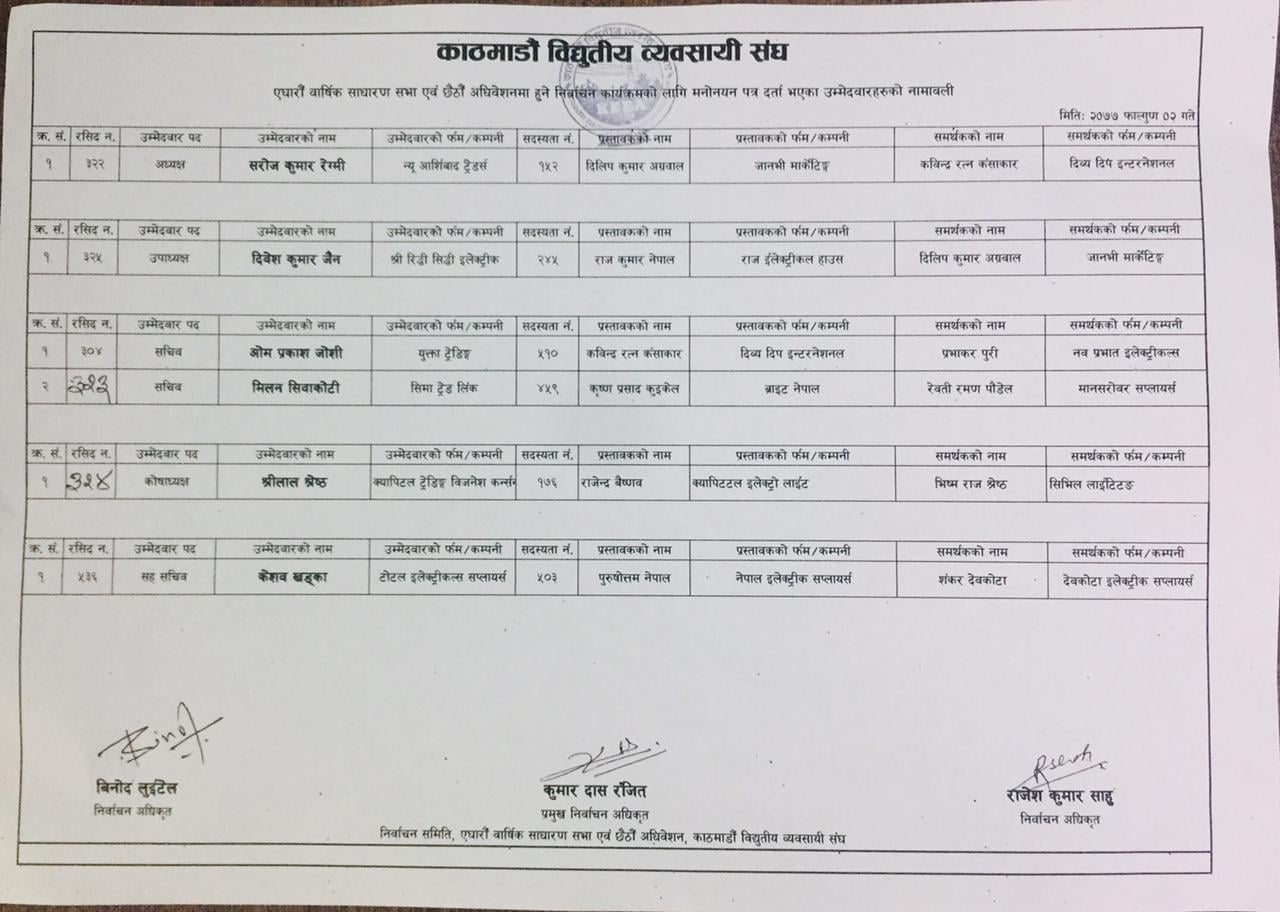 काठमाडौं विद्युतीय व्यवसायी संघ
एघारौं वार्षिक साधारण सभा एवं छैठौं अधिवेशनमा हुने निर्वाचन कार्यक्रमको लागि मनोनयन पत्र दर्ता भएका उम्मेदवारहरुको नामावली
मितिः २०७७ फाल्गुण ०२ गते
क्र. सं. रसिद न. उम्मेदवार पद उम्मेदवारको नाम उम्मेदवारको फर्म/कम्पनी सदस्यता नं. प्रस्तावकको नाम प्रस्तावकको फर्म/कम्पनी समर्थकको नाम समर्थकको फर्म/कम्पनी
१ ३२२ अध्यक्ष सरोज कुमार रेग्मी न्यू आर्शिबाद ट्रेडर्स १५२ दिलिप कुमार अग्रवाल जानभी मार्केटिङ्ग कविन्द्र रत्न कंसाकार दिव्य दिप इन्टरनेशनल
क्र. सं. रसिद न. उम्मेदवार पद उम्मेदवारको नाम उम्मेदवारको फर्म/कम्पनी सदस्यता नं. प्रस्तावकको नाम प्रस्तावकको फर्म/कम्पनी समर्थकको नाम समर्थकको फर्म/कम्पनी
१ ३२५ उपाध्यक्ष दिवेश कुमार जैन श्री रिद्धी सिद्धी इलेक्ट्रीक २४५ राज कुमार नेपाल राज ईलेक्ट्रीकल हाउस दिलिप कुमार अग्रवाल जानभी मार्केटिङ्ग
क्र. सं. रसिद न. उम्मेदवार पद उम्मेदवारको नाम उम्मेदवारको फर्म/कम्पनी सदस्यता नं. प्रस्तावकको नाम प्रस्तावकको फर्म/कम्पनी समर्थकको नाम समर्थकको फर्म/कम्पनी
१ ३०४ सचिव ओम प्रकाश जोशी युक्ता ट्रेडिङ्ग ५१० कविन्द्र रत्न कंसाकार दिव्य दिप इन्टरनेशनल प्रभाकर पुरी नव प्रभात इलेक्ट्रीकल्स
२ ३२३ सचिव मिलन सिवाकोटी सिमा ट्रेड लिंक ४५९ कृष्ण प्रसाद कुइकेल ब्राइट नेपाल रेवती रमण पौडेल मानसरोवर सप्लायर्स
क्र. सं. रसिद न. उम्मेदवार पद उम्मेदवारको नाम उम्मेदवारको फर्म/कम्पनी सदस्यता नं. प्रस्तावकको नाम प्रस्तावकको फर्म/कम्पनी समर्थकको नाम समर्थकको फर्म/कम्पनी
१ ३२४ कोषाध्यक्ष श्रीलाल श्रेष्ठ क्यापिटल ट्रेडिङ्ग विजनेश कर्न्सन १७६ राजेन्द्र बैष्णव क्यापिटटल इलेक्ट्रो लाईट भिष्म राज श्रेष्ठ सिभिल लाईटिटङ
क्र. सं. रसिद न. उम्मेदवार पद उम्मेदवारको नाम उम्मेदवारको फर्म/कम्पनी सदस्यता नं. प्रस्तावकको नाम प्रस्तावकको फर्म/कम्पनी समर्थकको नाम समर्थकको फर्म/कम्पनी
१ ५३६ सह सचिव केशव खड्का टोटल इलेक्ट्रीकल्स सप्लायर्स ५०३ पुरुषोत्तम नेपाल नेपाल इलेक्ट्रीक सप्लायर्स शंकर देवकोटा देवकोटा इलेक्ट्रीक सप्लायर्स
बिनोद लुईटेल कुमार दास रंजित राजेश कुमार साहु
निर्वाचन अधिकृत प्रमुख निर्वाचन अधिकृत निर्वाचन अधिकृत
निर्वाचन समिति, एघारौं वार्षिक साधारण सभा एवं छैठौं अधिवेशन, काठमाडौं विद्युतीय व्यवसायी संघ